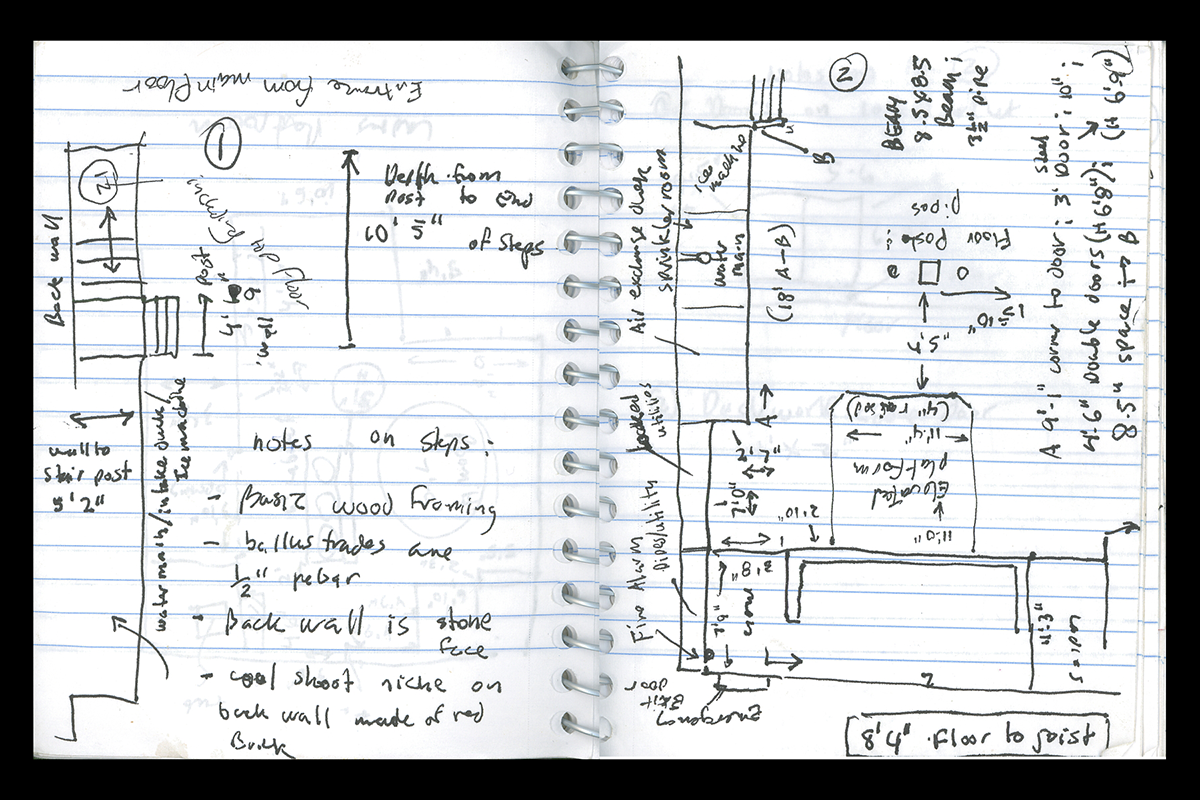 Entrance from main floor
1
12'
Back wall
post
4' to
wall
for floor
Depth from
post to end
10' 5"
of steps
wall to
stair post
5'2"
water main/intake duck/
Ice machine
notes on steps:
- Basic wood framing
- ballustrades are
1/2" rebar
- Back wall is stone
face
- coal shoot niche on
back wall made of red
Brick
2
ice machine
B
Air exchange duck
sprinkler rooms
water
main
(18' A-B)
8.5 x 8.5
Beam;
3½" pipe
Floor Posts:
pipes
5'
A 9'-1" corner to door; 3' steel Door; 10";
4'.6" Double doors (H 6'8"); (H 6'9")
8.5" space → B
A
Locked
utilities
Fire Alarm
Pipes/utility
2'.0"
2'.10"
3'8"
Elevated
platform
11'.4"
(4" raised)
11'.0"
Emergency
Exit
Door
4'.3"
8'4" Floor to joist